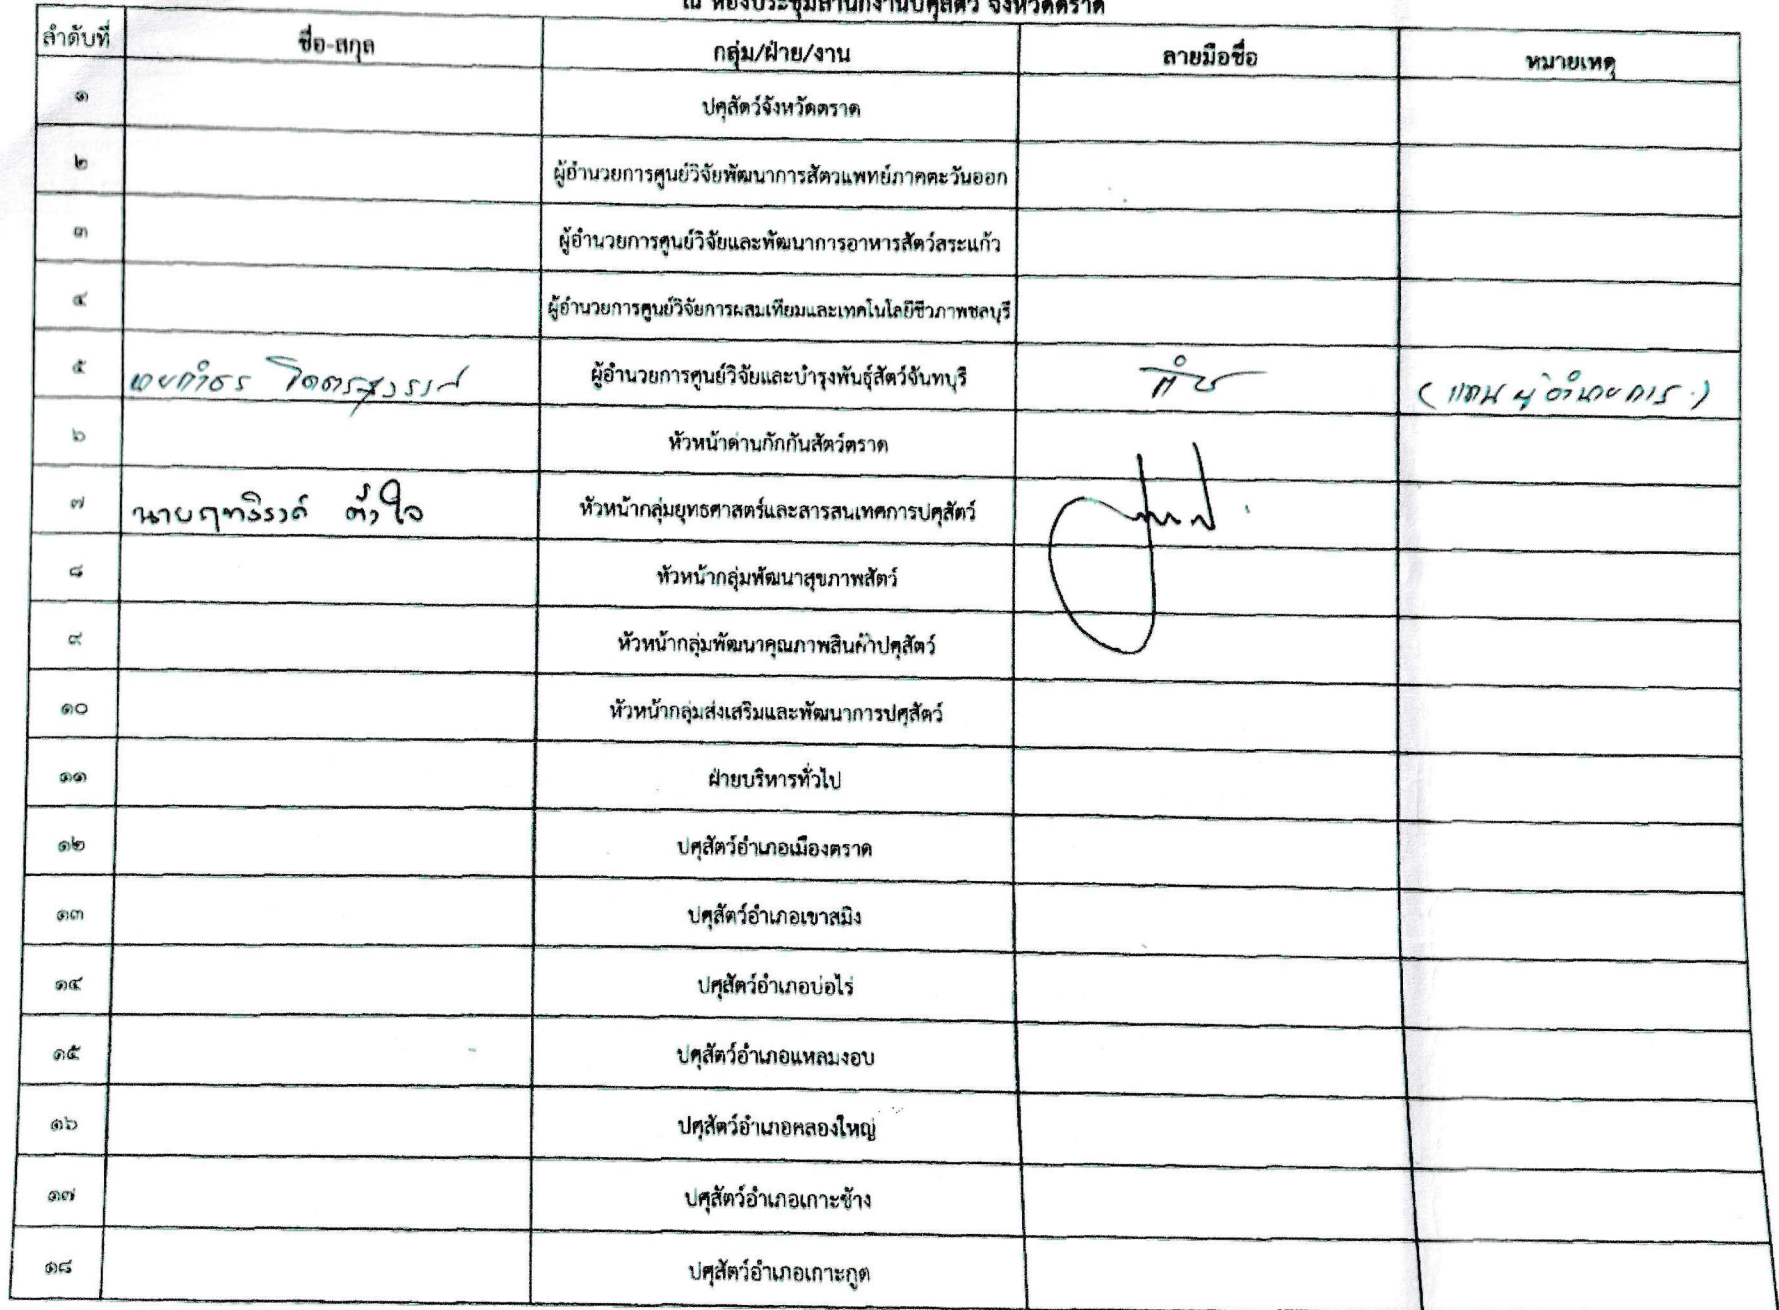 ณ ห้องประชุมสำนักงานปศุสัตว์ จังหวัดตราด
ลำดับที่ ชื่อ-สกุล กลุ่ม/ฝ่าย/งาน ลายมือชื่อ หมายเหตุ
๑ ปศุสัตว์จังหวัดตราด
๒ ผู้อำนวยการศูนย์วิจัยพัฒนาการสัตวแพทย์ภาคตะวันออก
๓ ผู้อำนวยการศูนย์วิจัยและพัฒนาการอาหารสัตว์สระแก้ว
๔ ผู้อำนวยการศูนย์วิจัยการผสมเทียมและเทคโนโลยีชีวภาพชลบุรี
๕ ผู้อำนวยการศูนย์วิจัยและบำรุงพันธุ์สัตว์จันทบุรี (แทน ผู้อำนวยการ)
๖ หัวหน้าด่านกักกันสัตว์ตราด
๗ หัวหน้ากลุ่มยุทธศาสตร์และสารสนเทศการปศุสัตว์
๘ หัวหน้ากลุ่มพัฒนาสุขภาพสัตว์
๙ หัวหน้ากลุ่มพัฒนาคุณภาพสินค้าปศุสัตว์
๑๐ หัวหน้ากลุ่มส่งเสริมและพัฒนาการปศุสัตว์
๑๑ ฝ่ายบริหารทั่วไป
๑๒ ปศุสัตว์อำเภอเมืองตราด
๑๓ ปศุสัตว์อำเภอเขาสมิง
๑๔ ปศุสัตว์อำเภอบ่อไร่
๑๕ ปศุสัตว์อำเภอแหลมงอบ
๑๖ ปศุสัตว์อำเภอคลองใหญ่
๑๗ ปศุสัตว์อำเภอเกาะช้าง
๑๘ ปศุสัตว์อำเภอเกาะกูด